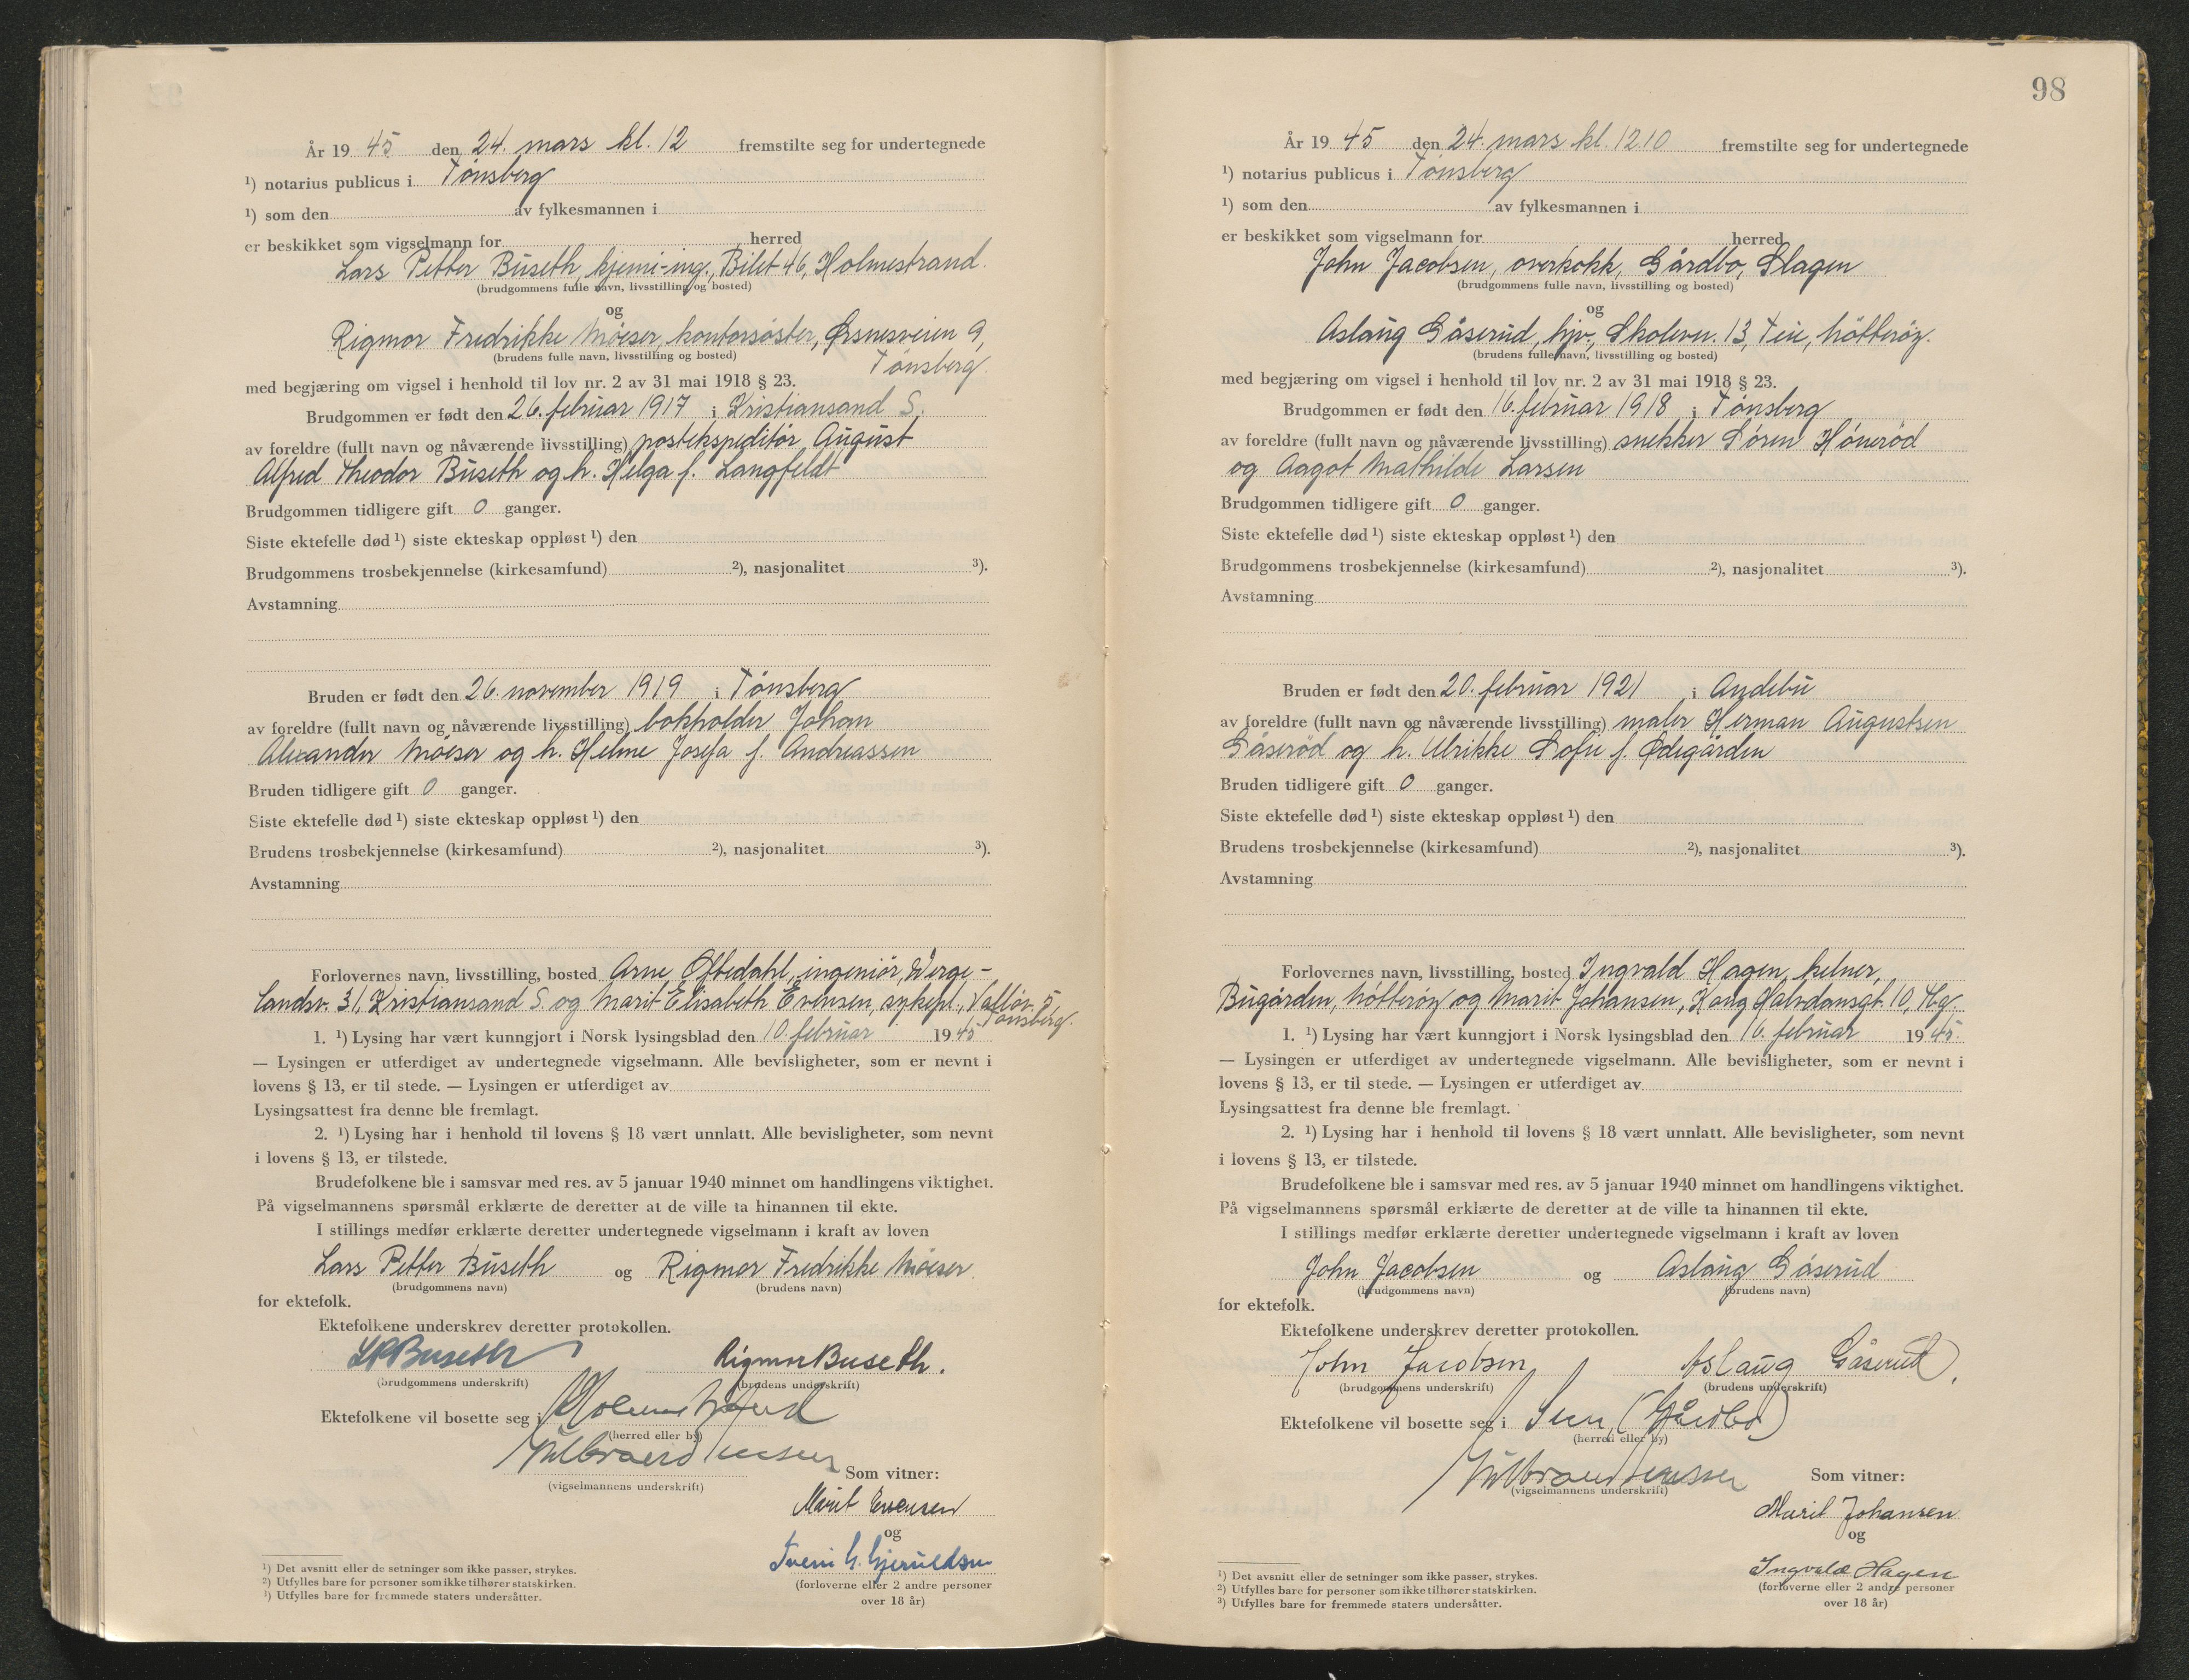 År 19 45 den 24. mars kl. 12 fremstilte seg for undertegnede
¹) notarius publicus i Tønsberg
¹) som den av fylkesmannen i
er beskikket som vigselmann for herred
Lars Petter Buseth, kjemi-ing., Bilet 46, Holmestrand.
(brudgommens fulle navn, livsstilling og bosted)
og
Rigmor Fredrikke Möeser, kontorsøster, Ørsnesveien 9,
(brudens fulle navn, livsstilling og bosted)
Tønsberg.
med begjæring om vigsel i henhold til lov nr. 2 av 31 mai 1918 § 23.
Brudgommen er født den 26. februar 1917 i Kristiansand S.
av foreldre (fullt navn og nåværende livsstilling) postekspeditør August
Alfred Theodor Buseth og h. Helga f. Langfeldt
Brudgommen tidligere gift 0 ganger.
Siste ektefelle død ¹) siste ekteskap oppløst ¹) den
Brudgommens trosbekjennelse (kirkesamfund) ²), nasjonalitet ³).
Avstamning
Bruden er født den 26. november 1919 i Tønsberg
av foreldre (fullt navn og nåværende livsstilling) bokholder Johan
Alexander Möeser og h. Helene Josefa f. Andreassen
Bruden tidligere gift 0 ganger.
Siste ektefelle død ¹) siste ekteskap oppløst ¹) den
Brudens trosbekjennelse (kirkesamfund) ²), nasjonalitet ³).
Avstamning
Forlovernes navn, livsstilling, bosted Arne Øftedahl, ingeniør, Werge-
landsv. 31, Kristiansand S. og Marit Elisabeth Evensen, sykepl., Valløv. 5,
Tønsberg.
1. ¹) Lysing har vært kunngjort i Norsk lysingsblad den 10. februar 19 45
— Lysingen er utferdiget av undertegnede vigselmann. Alle bevisligheter, som er nevnt i
lovens § 13, er til stede. — Lysingen er utferdiget av
Lysingsattest fra denne ble fremlagt.
2. ¹) Lysing har i henhold til lovens § 18 vært unnlatt. Alle bevisligheter, som nevnt
i lovens § 13, er tilstede.
Brudefolkene ble i samsvar med res. av 5 januar 1940 minnet om handlingens viktighet.
På vigselmannens spørsmål erklærte de deretter at de ville ta hinannen til ekte.
I stillings medfør erklærte deretter undertegnede vigselmann i kraft av loven
Lars Petter Buseth og Rigmor Fredrikke Möeser
(brudgommens navn) (brudens navn)
for ektefolk.
Ektefolkene underskrev deretter protokollen.
LPBuseth Rigmor Buseth.
(brudgommens underskrift) (brudens underskrift)
Ektefolkene vil bosette seg i Holmestrand
(herred eller by)
Som vitner:
(vigselmannens underskrift)
Marit Evensen
og
(forloverne eller 2 andre personer
over 18 år)
¹) Det avsnitt eller de setninger som ikke passer, strykes.
²) Utfylles bare for personer som ikke tilhører statskirken.
³) Utfylles bare for fremmede staters undersåtter.
98
År 19 45 den 24. mars kl. 12.10 fremstilte seg for undertegnede
¹) notarius publicus i Tønsberg
¹) som den av fylkesmannen i
er beskikket som vigselmann for herred
John Jacobsen, overkokk, Gårdbo, Slagen
(brudgommens fulle navn, livsstilling og bosted)
og
Aslaug Gåserud, hjv., Skolevn. 13, Teie, Nøtterøy.
(brudens fulle navn, livsstilling og bosted)
med begjæring om vigsel i henhold til lov nr. 2 av 31 mai 1918 § 23.
Brudgommen er født den 16. februar 1918 i Tønsberg
av foreldre (fullt navn og nåværende livsstilling) snekker Søren Hönerød
og Aagot Mathilde Larsen
Brudgommen tidligere gift 0 ganger.
Siste ektefelle død ¹) siste ekteskap oppløst ¹) den
Brudgommens trosbekjennelse (kirkesamfund) ²), nasjonalitet ³).
Avstamning
Bruden er født den 20. februar 1921 i Andebu
av foreldre (fullt navn og nåværende livsstilling) maler Herman Augustsen
Gåserød og h. Ulrikke Sofie f. Ødegården
Bruden tidligere gift 0 ganger.
Siste ektefelle død ¹) siste ekteskap oppløst ¹) den
Brudens trosbekjennelse (kirkesamfund) ²), nasjonalitet ³).
Avstamning
Forlovernes navn, livsstilling, bosted Ingvald Hagen, kelner,
Bugården, Nøtterøy og Marit Johansen, Kong Halvdansgt. 10, Tbg.
1. ¹) Lysing har vært kunngjort i Norsk lysingsblad den 16. februar 19 45.
— Lysingen er utferdiget av undertegnede vigselmann. Alle bevisligheter, som er nevnt i
lovens § 13, er til stede. — Lysingen er utferdiget av
Lysingsattest fra denne ble fremlagt.
2. ¹) Lysing har i henhold til lovens § 18 vært unnlatt. Alle bevisligheter, som nevnt
i lovens § 13, er tilstede.
Brudefolkene ble i samsvar med res. av 5 januar 1940 minnet om handlingens viktighet.
På vigselmannens spørsmål erklærte de deretter at de ville ta hinannen til ekte.
I stillings medfør erklærte deretter undertegnede vigselmann i kraft av loven
John Jacobsen og Aslaug Gåserud
(brudgommens navn) (brudens navn)
for ektefolk.
Ektefolkene underskrev deretter protokollen.
John Jacobsen Aslaug Gåserud.
(brudgommens underskrift) (brudens underskrift)
Ektefolkene vil bosette seg i Sem (Gårdbo)
(herred eller by)
Som vitner:
(vigselmannens underskrift)
Marit Johansen
og
Ingvald Hagen
(forloverne eller 2 andre personer
over 18 år)
¹) Det avsnitt eller de setninger som ikke passer, strykes.
²) Utfylles bare for personer som ikke tilhører statskirken.
³) Utfylles bare for fremmede staters undersåtter.